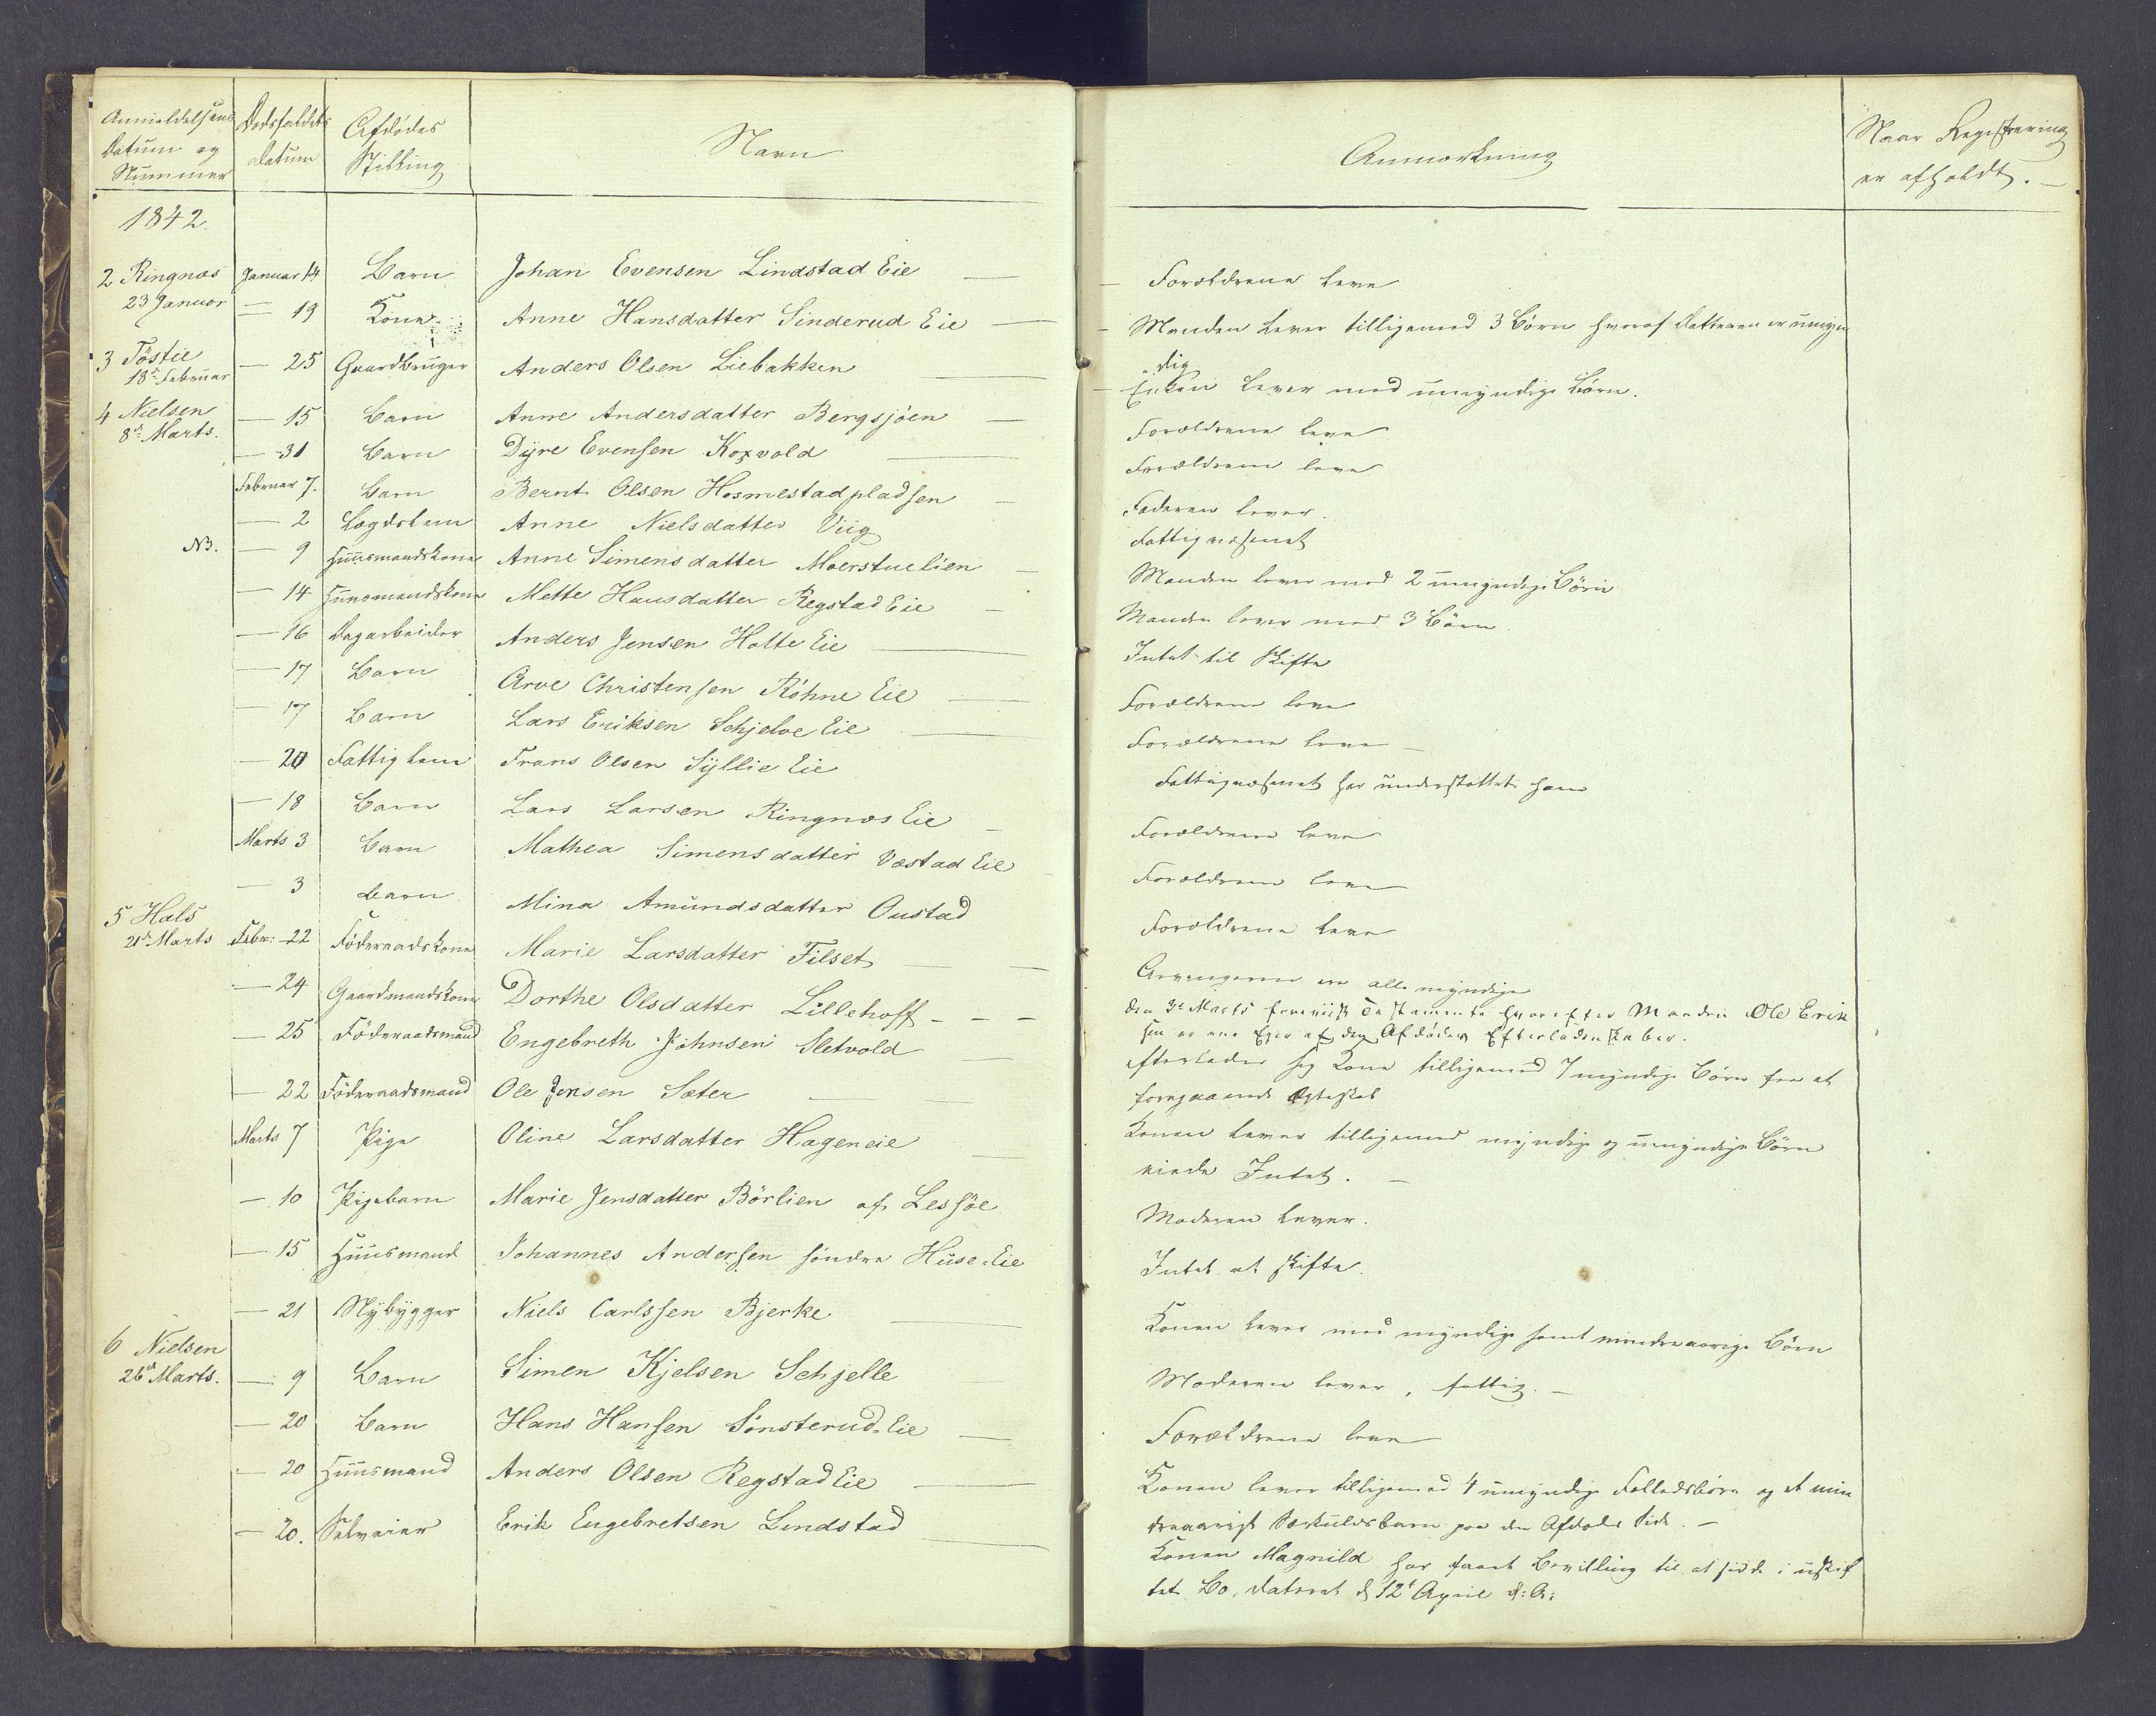 Anmeldelsens Datum og Nummer | Dødsfaldets Datum | Afdødes Stilling | Navn | Anmærkning | Naar Registrering er afholdt. —
1842.
2 Ringnæs 23 Januar | Januar 14 | Barn | Johan Evensen Lindstad Eie | Forældrene leve
— 19 | Kone | Anne Hansdatter Sinderud Eie | Manden lever tilligemed 3 Børn hvoraf Datteren er umyndig
3 Töstie 18de Februar | — 25 | Gaardbruger | Anders Olsen Liebakken | Enken lever med umyndige Børn.
4 Nielsen 8de Marts. | — 15 | Barn | Anne Andersdatter Bergsjöen | Forældrene leve
— 31 | Barn | Dyre Evensen Koxvold | Forældrene leve
Februar 7. | Barn | Bernt Olsen Hosmestadpladsen | Faderen lever.
— 2 | Lægdslem | Anne Nielsdatter Viig | Fattigvæsenet
NB. | — 9 | Huusmandskone | Anne Simensdatter Moerstuelien | Manden lever med 2 umyndige Børn
— 14 | Huusmandskone | Mette Hansdatter Regstad Eie | Manden lever med 3 Børn.
— 16 | Dagarbeider | Anders Jensen Holte Eie | Intet til Skifte
— 17 | Barn | Arve Christensen Röhne Eie | Forældrene leve
— 17 | Barn | Lars Eriksen Schjelve Eie | Forældrene leve —
— 20 | Fattiglem | Frans Olsen Syllie Eie | Fattigvæsenet har understøttet ham
— 18 | Barn | Lars Larsen Ringnæs Eie | Forældrene leve
Marts 3 | Barn | Mathea Simensdatter Væstad Eie | Forældrene leve
— 3 | Barn | Mina Amundsdatter Oustad | Forældrene leve
5 Hals 21de Marts | Febr: 22 | Föderaadskone | Marie Larsdatter Filset | Arvingerne ere alle myndige
— 24 | Gaardmandskone | Dorthe Olsdatter Lillehoff | den 3de Marts foreviist Testamente hvorefter Manden Ole Eriksen er ene Eier af den Afdødes Efterladenskaber.
— 25 | Föderaadsmand | Engebreth Johnsen Sletvold | efterlader sig Kone tilligemed 7 myndige Børn fra et foregaaende Ægteskab
— 22 | Föderaadsmand | Ole Jensen Sæter | Konen lever tilligemed myndige og umyndige Børn
Marts 7 | Pige | Oline Larsdatter Hageneie | eiede Intet. —
— 10 | Pigebarn | Marie Jensdatter Börlien af Lessöe | Moderen lever.
— 15 | Huusmand | Johannes Andersen söndre Huse-Eie | Intet at skifte.
— 21 | Nybygger | Niels Carlssen Bjerke | Konen lever med myndige samt mindreaarige Børn
6 Nielsen 26de Marts. | — 9 | Barn | Simen Kjelsen Schjelle | Moderen lever, fattig. —
— 20 | Barn | Hans Hansen Sönsterud-Eie | Forældrene leve
— 20 | Huusmand | Anders Olsen Regstad Eie | Konen lever tilligemed 4 umyndige Fælledsbörn og et mindreaarigt Særkuldsbarn paa den Afdødes Side. —
— 20. | Selveier | Erik Engebretsen Lundstad | Konen Magnild har faaet Bevilling til at sidde i uskiftet Bo, dateret d 12te April d: A: